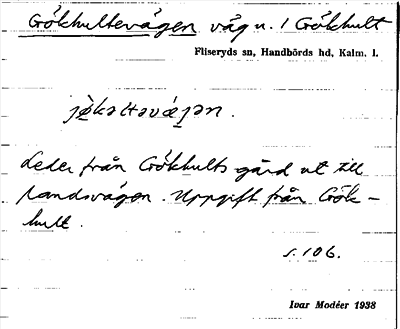 Gökhultevägen väg n. / Gökhult
Fliseryds sn, Handbörds hd, Kalm. l.
jø̀kəltəvǽ̱jən.
Leder från Gökhults gård ut till
landsvägen. Uppgift från Gök-
hult.
s. 106.
Ivar Modéer 1938